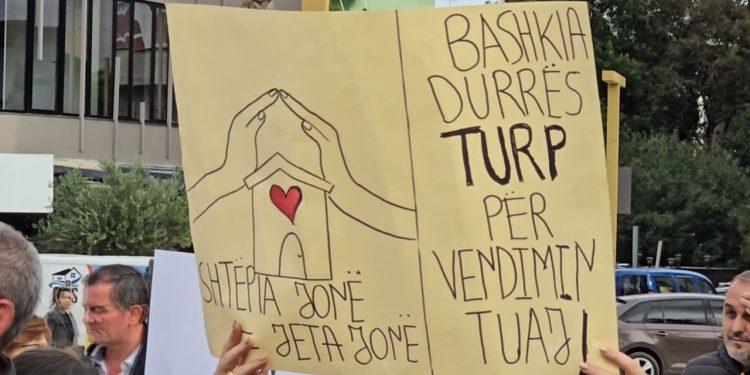 SHTËPIA JONË
JETA JONË
BASHKIA
DURRËS
TURP
PËR
VENDIMIN
TUAJ!